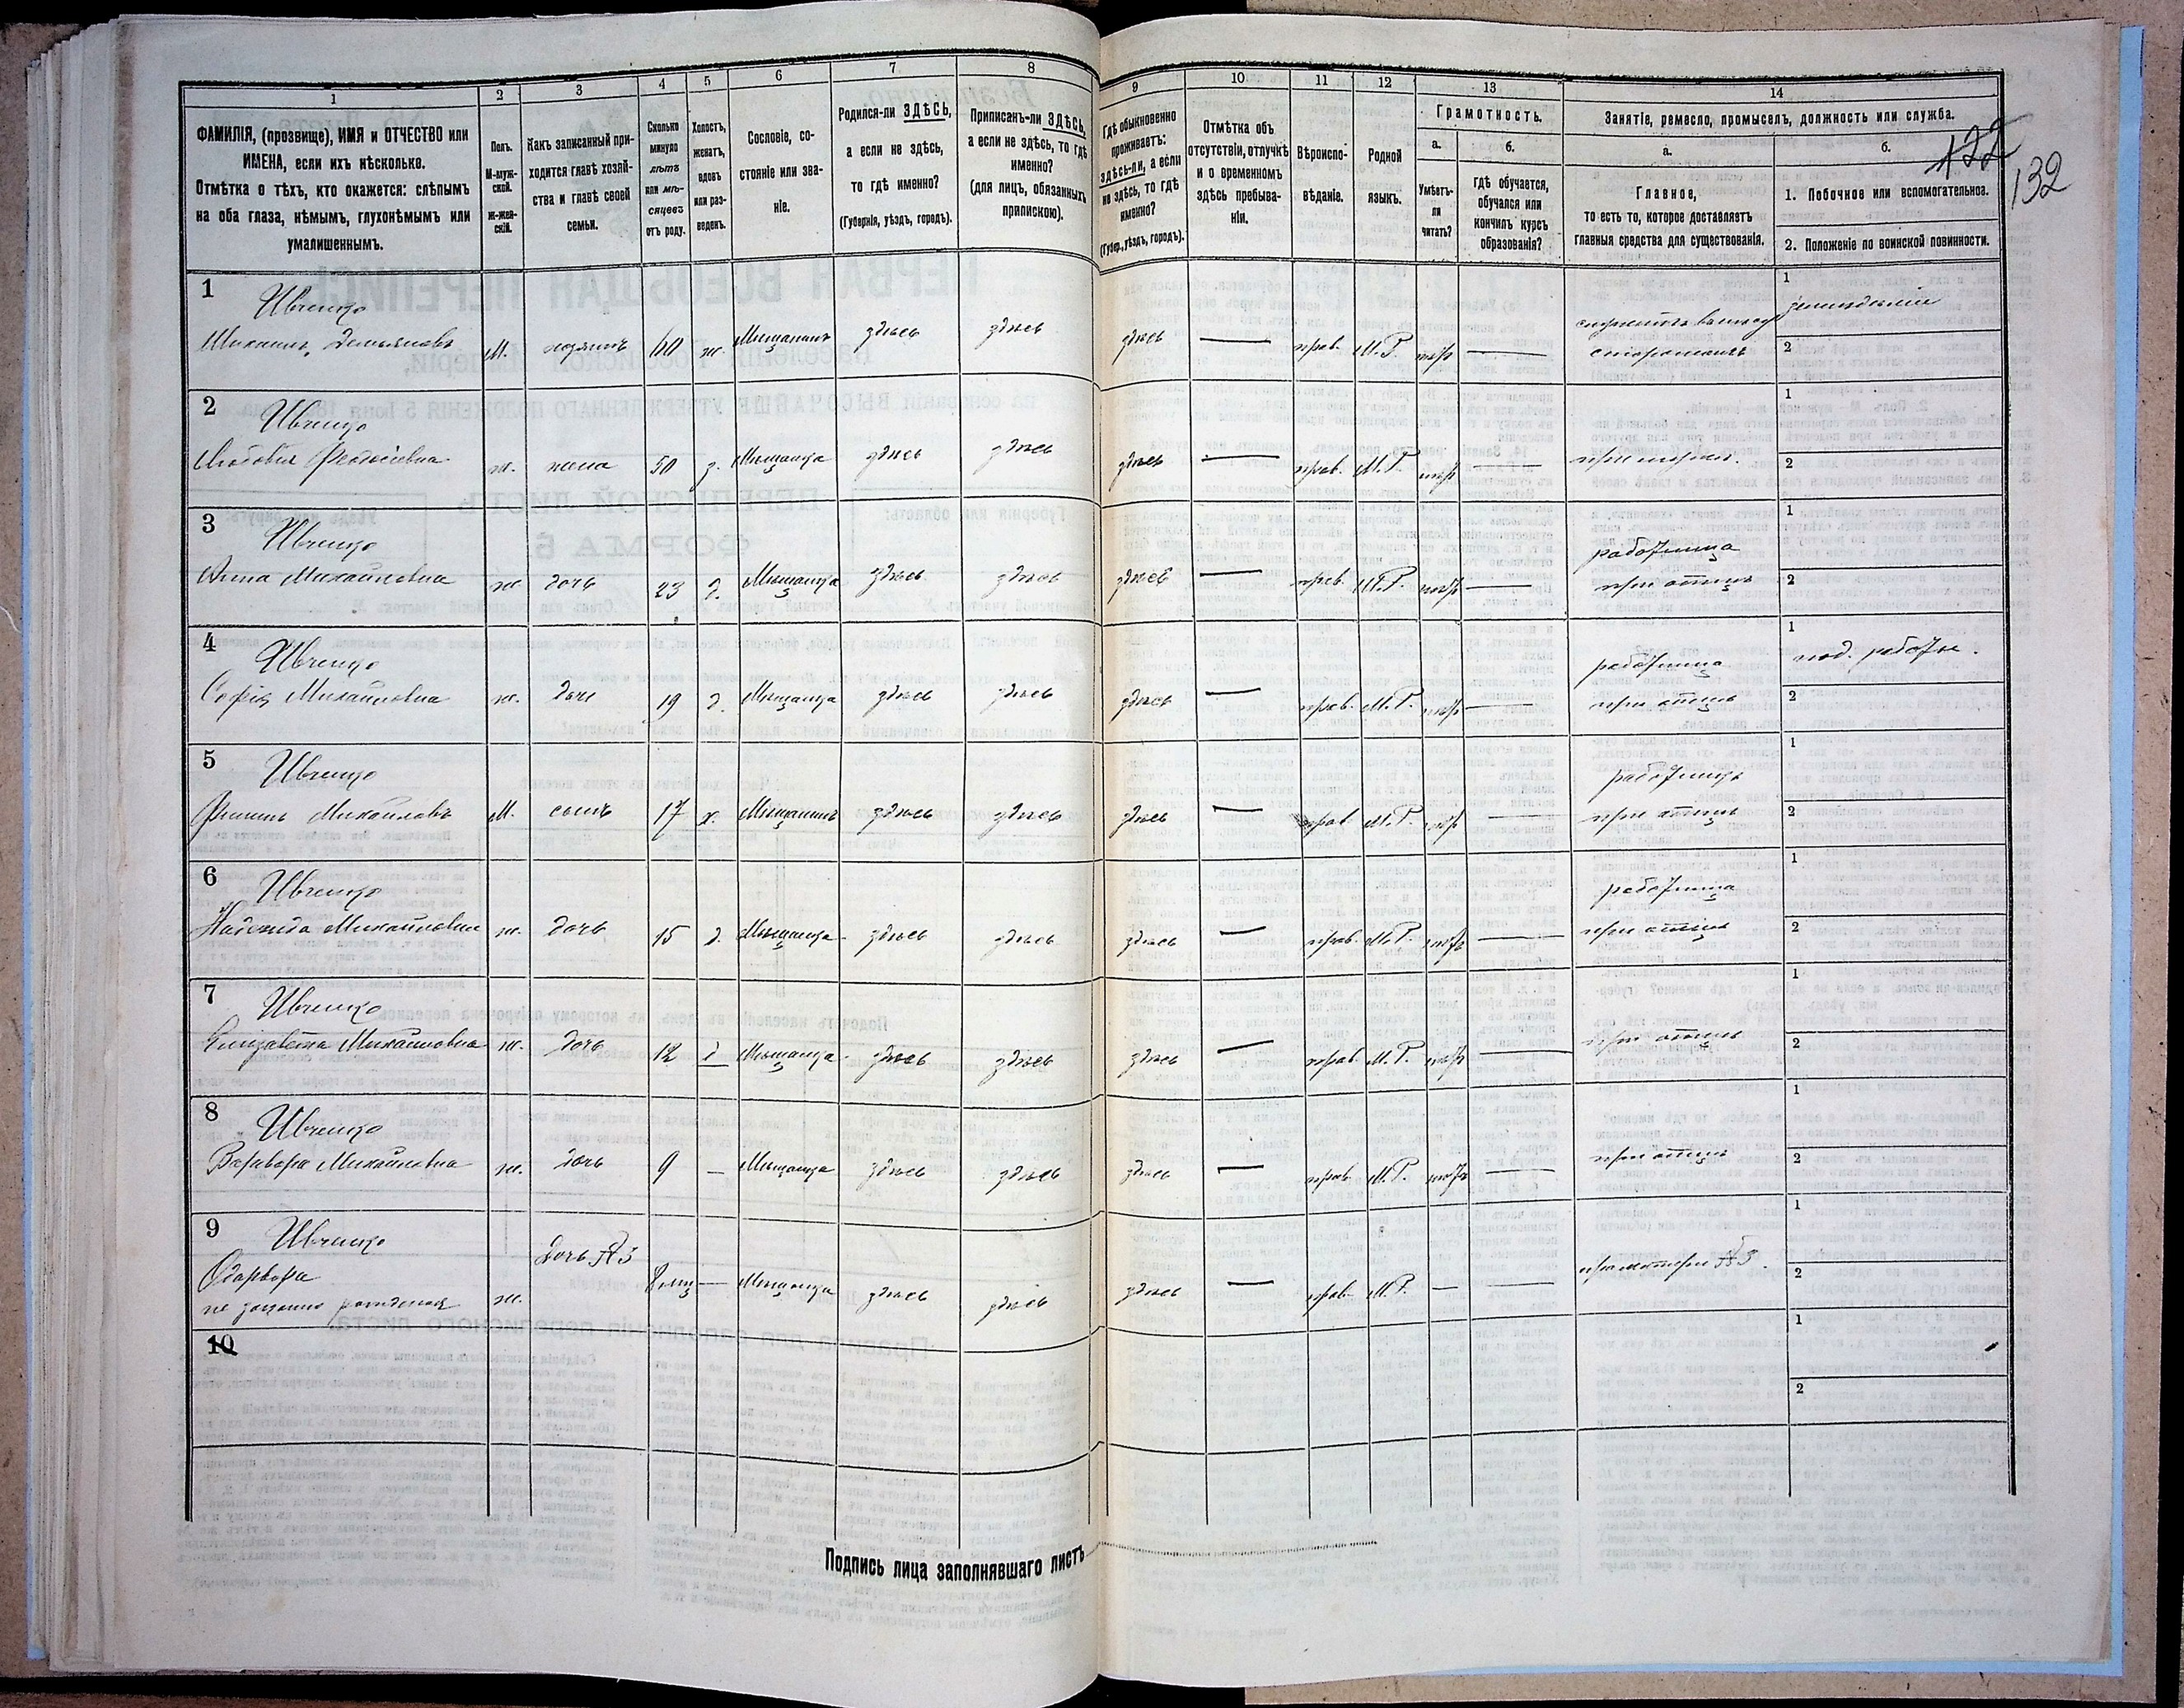 1 2 3 4 5 6 7 8 9 10 11 12 13 14
ФАМИЛІЯ, (прозвище), ИМЯ и ОТЧЕСТВО или
ИМЕНА, если ихъ нѣсколько.
Отмѣтка о тѣхъ, кто окажется: слѣпымъ
на оба глаза, нѣмымъ, глухонѣмымъ или
умалишеннымъ.
Полъ.
М-муж-
ской.
ж-жен-
скій.
Какъ записанный при-
ходится главѣ хозяй-
ства и главѣ своей
семьи.
Сколько
минуло
лѣтъ
или мѣ-
сяцевъ
отъ роду.
Холостъ,
женатъ,
вдовъ
или раз-
веденъ.
Сословіе, со-
стояніе или зва-
ніе.
Родился-ли ЗДѢСЬ,
а если не здѣсь,
то гдѣ именно?
(Губернія, уѣздъ, городъ).
Приписанъ-ли ЗДѢСЬ,
а если не здѣсь, то гдѣ
именно?
(для лицъ, обязанныхъ
припискою).
Гдѣ обыкновенно
проживаетъ:
здѣсь-ли, а если
не здѣсь, то гдѣ
именно?
(Губер., уѣздъ, городъ).
Отмѣтка объ
отсутствіи, отлучкѣ
и о временномъ
здѣсь пребыва-
ніи.
Вѣроиспо-
вѣданіе.
Родной
языкъ.
Грамотность.
а.
Умѣетъ-
ли
читать?
б.
гдѣ обучается,
обучался или
кончилъ курсъ
образованія?
Занятіе, ремесло, промыселъ, должность или служба.
а.
Главное,
то есть то, которое доставляетъ
главныя средства для существованія.
б.
1. Побочное или вспомогательное.
2. Положеніе по воинской повинности.
122
132
1 Ивченко 1 земледѣліе
Михаилъ Демьяновъ М. хозяинъ 60 ж. Мѣщанинъ здѣсь здѣсь здѣсь — прав. М.Р. — сторожемъ 2
2 Ивченко 1
Любовья ж. жена 50 з. Мѣщанка здѣсь здѣсь здѣсь — прав. М.Р. — при мужѣ. 2
3 Ивченко работница 1
Анна Михайловна ж. дочь 23 д. Мѣщанка здѣсь здѣсь здѣсь — прав. М.Р. — при отцѣ 2
4 Ивченко работница 1 под. работы.
Софія Михайловна ж. дочь 19 д. Мѣщанка здѣсь здѣсь здѣсь — прав. М.Р. — при отцѣ 2
5 Ивченко работникъ 1
Михайловъ М. сынъ 17 х. Мѣщанинъ здѣсь здѣсь здѣсь — прав. М.Р. — при отцѣ 2
6 Ивченко работница 1
Надежда Михайловна ж. дочь 15 д. Мѣщанка здѣсь здѣсь здѣсь — прав. М.Р. — при отцѣ 2
7 Ивченко 1
Елизавета Михайловна ж. дочь 12 д Мѣщанка здѣсь здѣсь здѣсь — прав. М.Р. — при отцѣ 2
8 Ивченко 1
Варвара Михайловна ж. дочь 9 — Мѣщанка здѣсь здѣсь здѣсь — прав. М.Р. — при отцѣ 2
9 Ивченко Дочь №3 1
ж. — Мѣщанка здѣсь здѣсь здѣсь — прав. М.Р. — — при матери №3. 2
не законно рожденная
10 1
2
Подпись лица заполнявшаго листъ